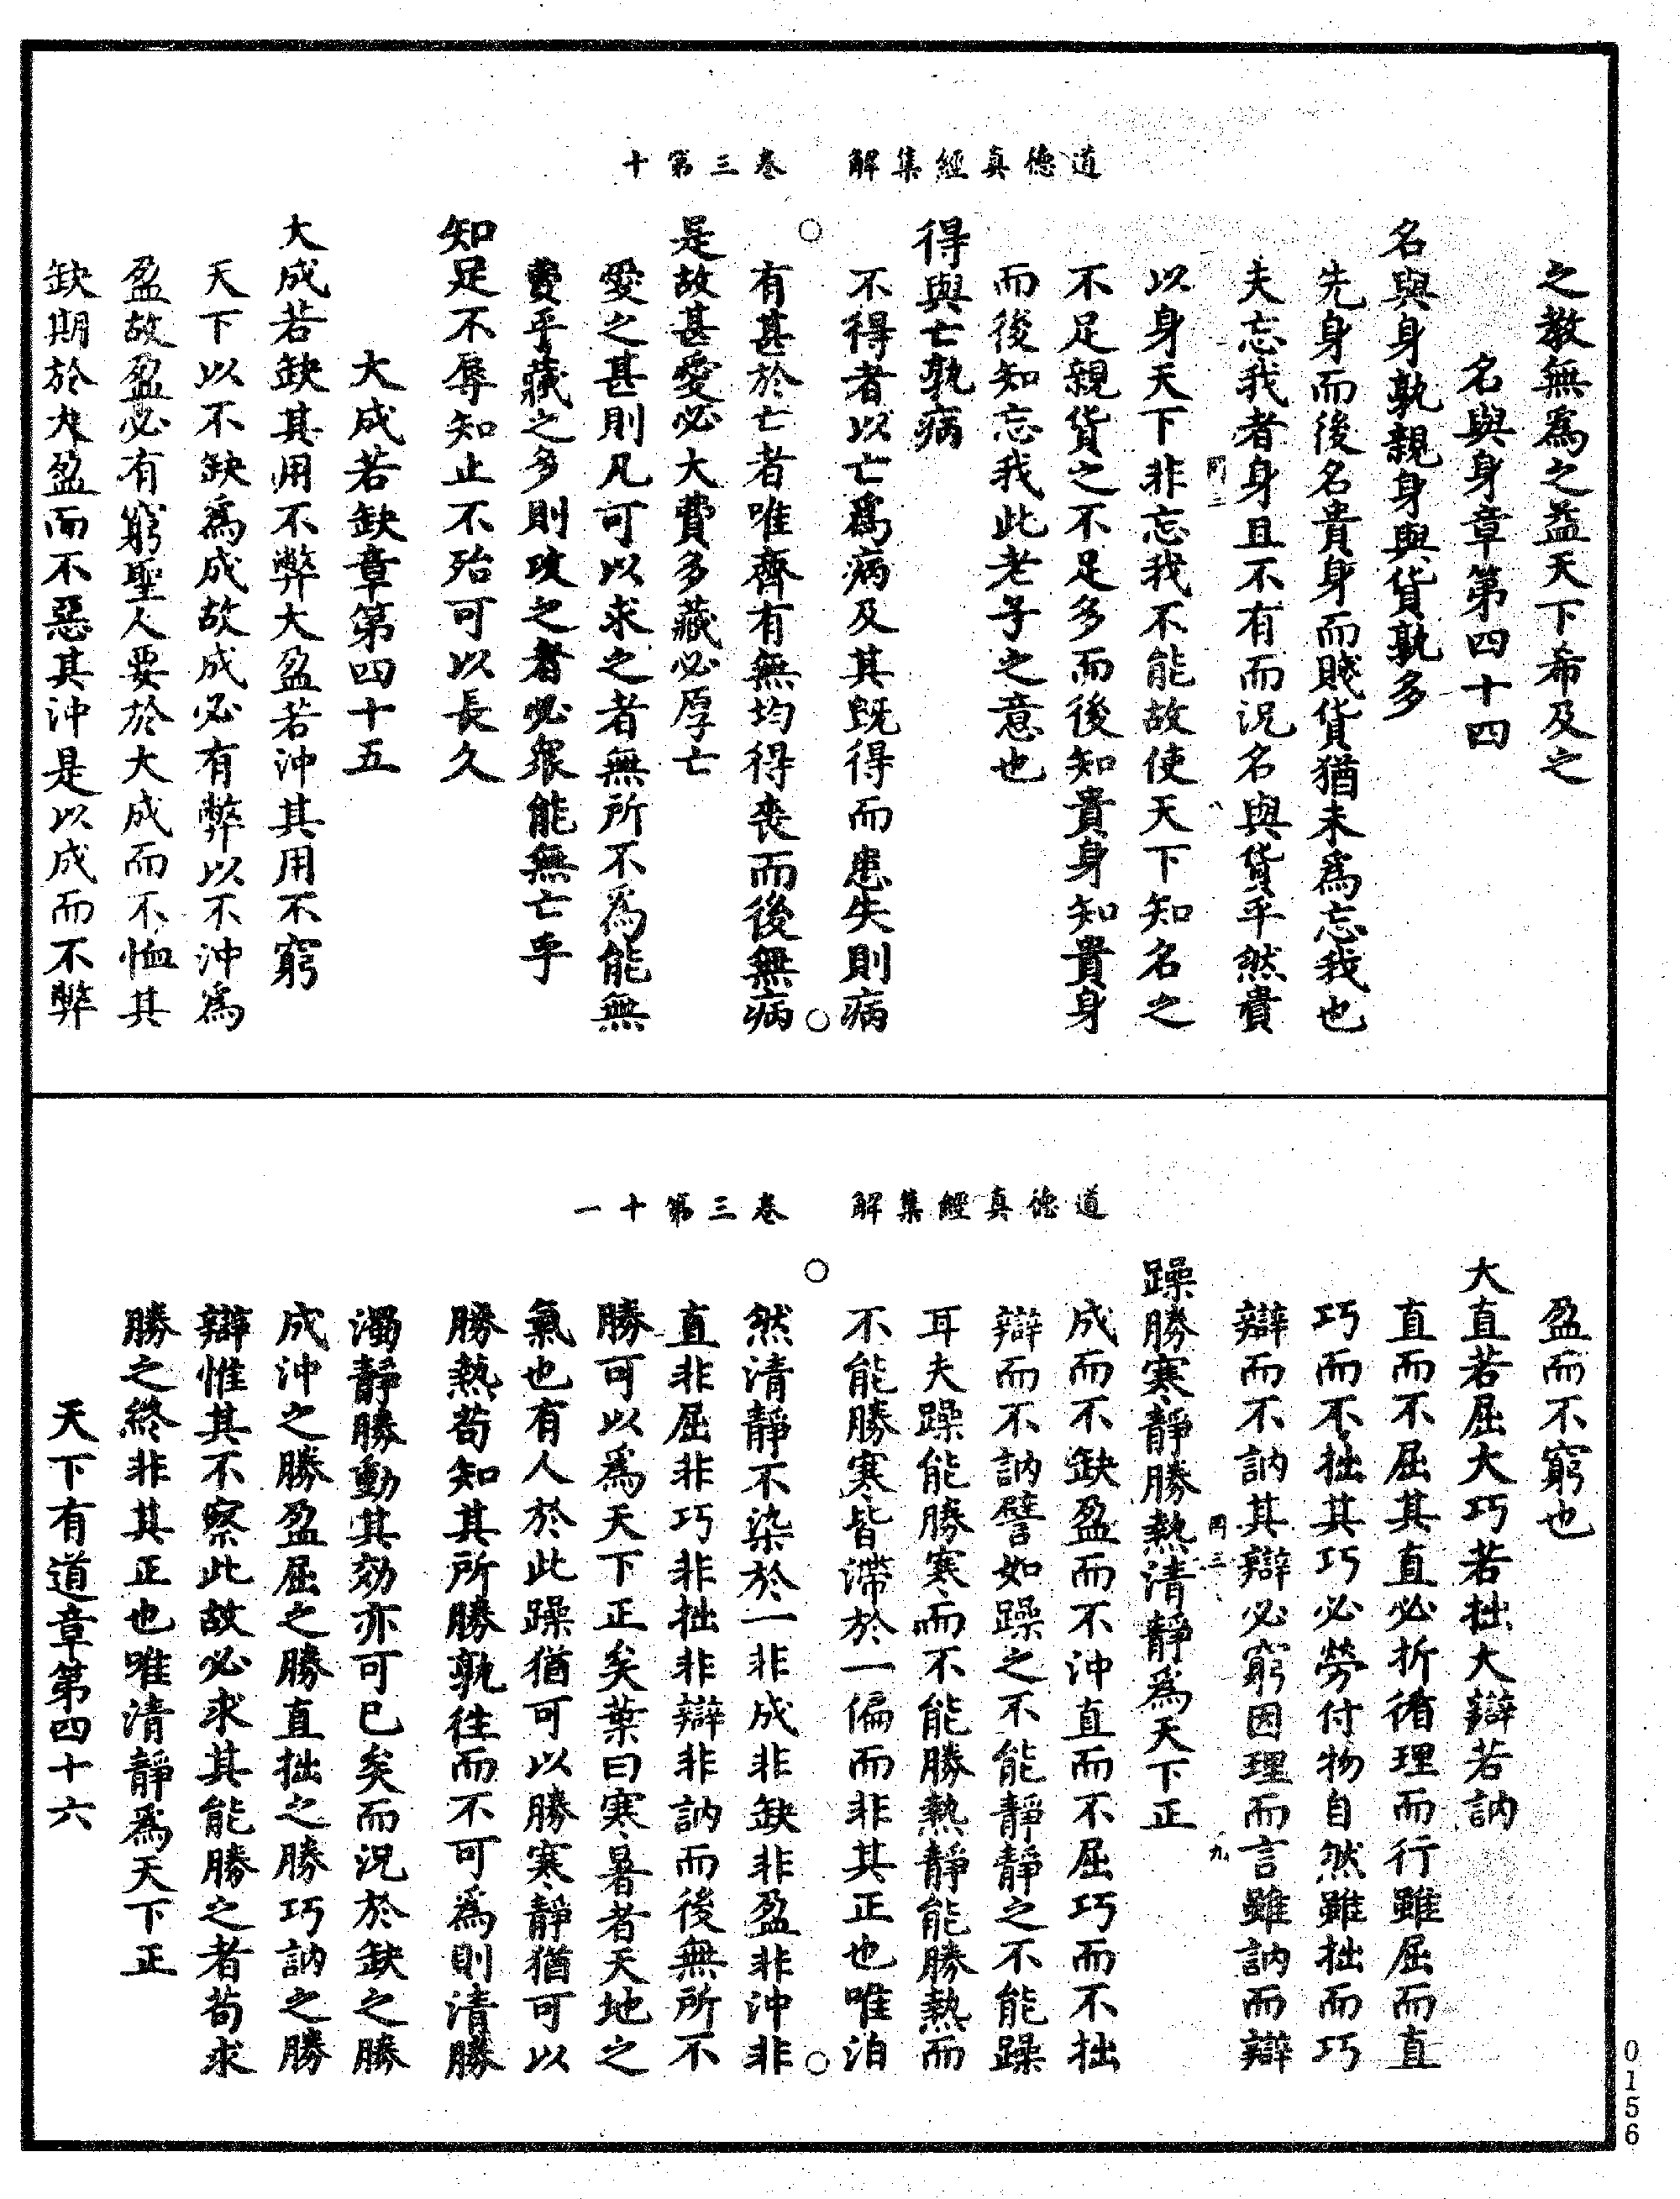 道德真經集解　卷三第十
之教無為之益天下希及之
名與身章第四十四
名與身孰親身與貨孰多
先身而後名貴身而賤貨猶未爲忘我也
夫忘我者身且不有而況名與貨乎然貴
以身天下非忘我不能故使天下知名之
不足親貨之不足多而後知貴身知貴身
而後知忘我此老子之意也
得與亡孰病
不得者以亡爲病及其既得而患失則病
有甚於亡者唯齊有無均得喪而後無病
是故甚愛必大費多藏必厚亡
愛之甚則凡可以求之者無所不為能無
費乎藏之多則攻之者必衆能無亡乎
知足不辱知止不殆可以長久
大成若缺章第四十五
大成若缺其用不弊大盈若沖其用不窮
天下以不缺爲成故成必有弊以不沖爲
盈故盈必有窮聖人要於大成而不恤其
缺期於大盈而不惡其沖是以成而不弊
道德真經集解　卷三第十一
盈而不窮也
大直若屈大巧若拙大辯若訥
直而不屈其直必折循理而行雖屈而直
巧而不拙其巧必勞付物自然雖拙而巧
辯而不訥其辯必窮因理而言雖訥而辯
躁勝寒靜勝熱清靜爲天下正
成而不缺盈而不沖直而不屈巧而不拙
辯而不訥譬如躁之不能靜靜之不能躁
耳夫躁能勝寒而不能勝熱靜能勝熱而
不能勝寒皆滯於一偏而非其正也唯泊
然清靜不染於一非成非缺非盈非沖非
直非屈非巧非拙非辯非訥而後無所不
勝可以爲天下正矣葉曰寒暑者天地之
氣也有人於此躁猶可以勝寒靜猶可以
勝熱苟知其所勝孰往而不可爲則清勝
濁靜勝動其効亦可已矣而況於缺之勝
成沖之勝盈屈之勝直拙之勝巧訥之勝
辯惟其不察此故必求其能勝之者苟求
勝之終非其正也唯清靜爲天下正
天下有道章第四十六
0156